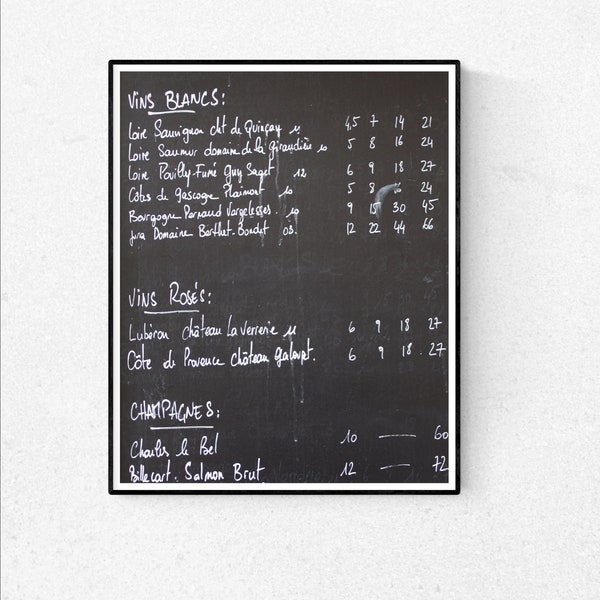 VINS BLANCS:
Loire Sauvignon cht de Quinçay 11 4,5 7 14 21
Loire Saumur domaine de la Giraudière 10 5 8 16 24
Loire Pouilly-Fumé Guy Saget 12 6 9 18 27
Côtes de gascogne Plaimont 10 5 8 16 24
Bourgogne Pernand Vergelesses. 10 9 15 30 45
Jura Domaine Berthet-Bondet 08. 12 22 44 66
VINS ROSÉS:
Lubéron château La verrerie 11 6 9 18 27
Côte de Provence château Galoupet. 6 9 18. 27
CHAMPAGNES:
Charles le Bel 10 — 60
Billecart. Salmon Brut 12 — 72